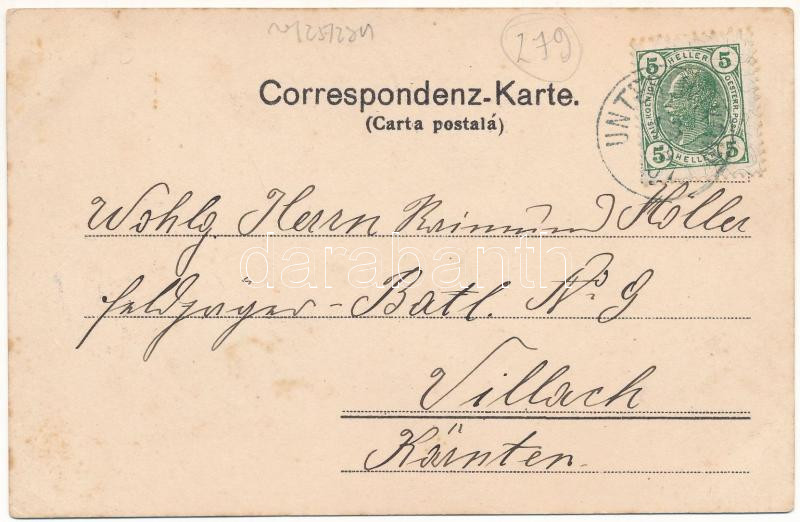 279
Correspondenz-Karte.
(Carta postalá)
5 HELLER 5
KAIS. KOENIGL. OESTERR. POST
5 HELLER 5
UNT
07
Wohlg. Herrn Raimund Höller
Feldjäger-Batl. No. 9
Villach
Kärnten
darabanth